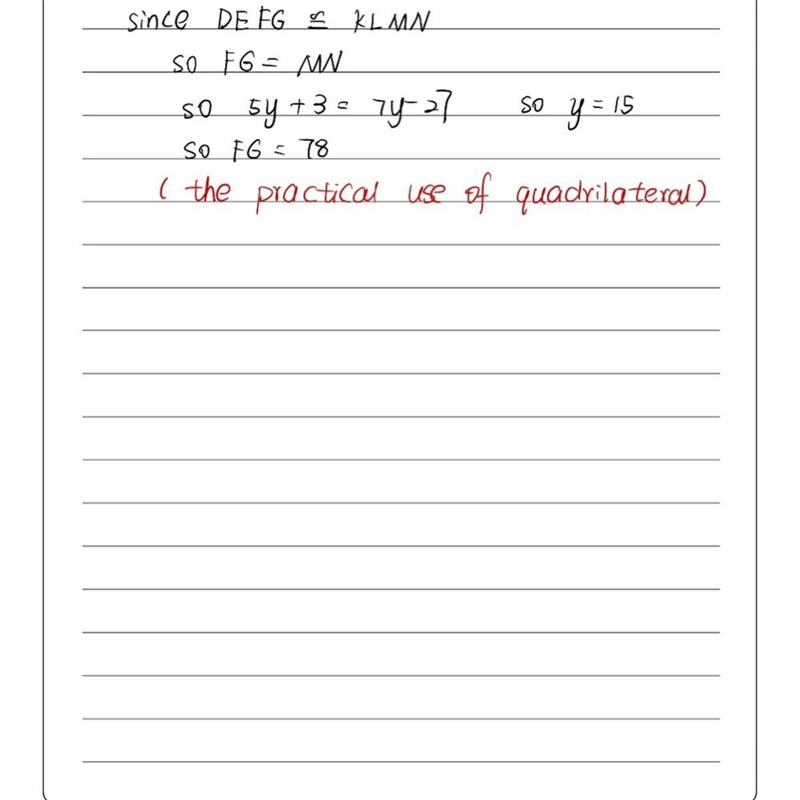 since DEFG ≅ KLMN
so FG = MN
so 5y + 3 = 7y - 27 so y = 15
so FG = 78
( the practical use of quadrilateral )